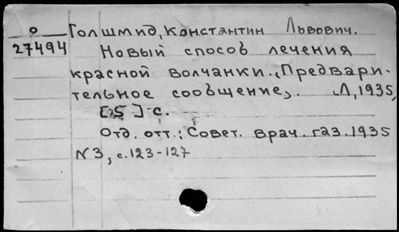 o Голшмид, Константин Львович.
27494 Новый способ лечения
красной волчанки. (Предвари-
тельное сообщение). Л, 1935,
[5] с.
Отд. отт.: Совет. врач. газ. 1935
N3, с. 123-127